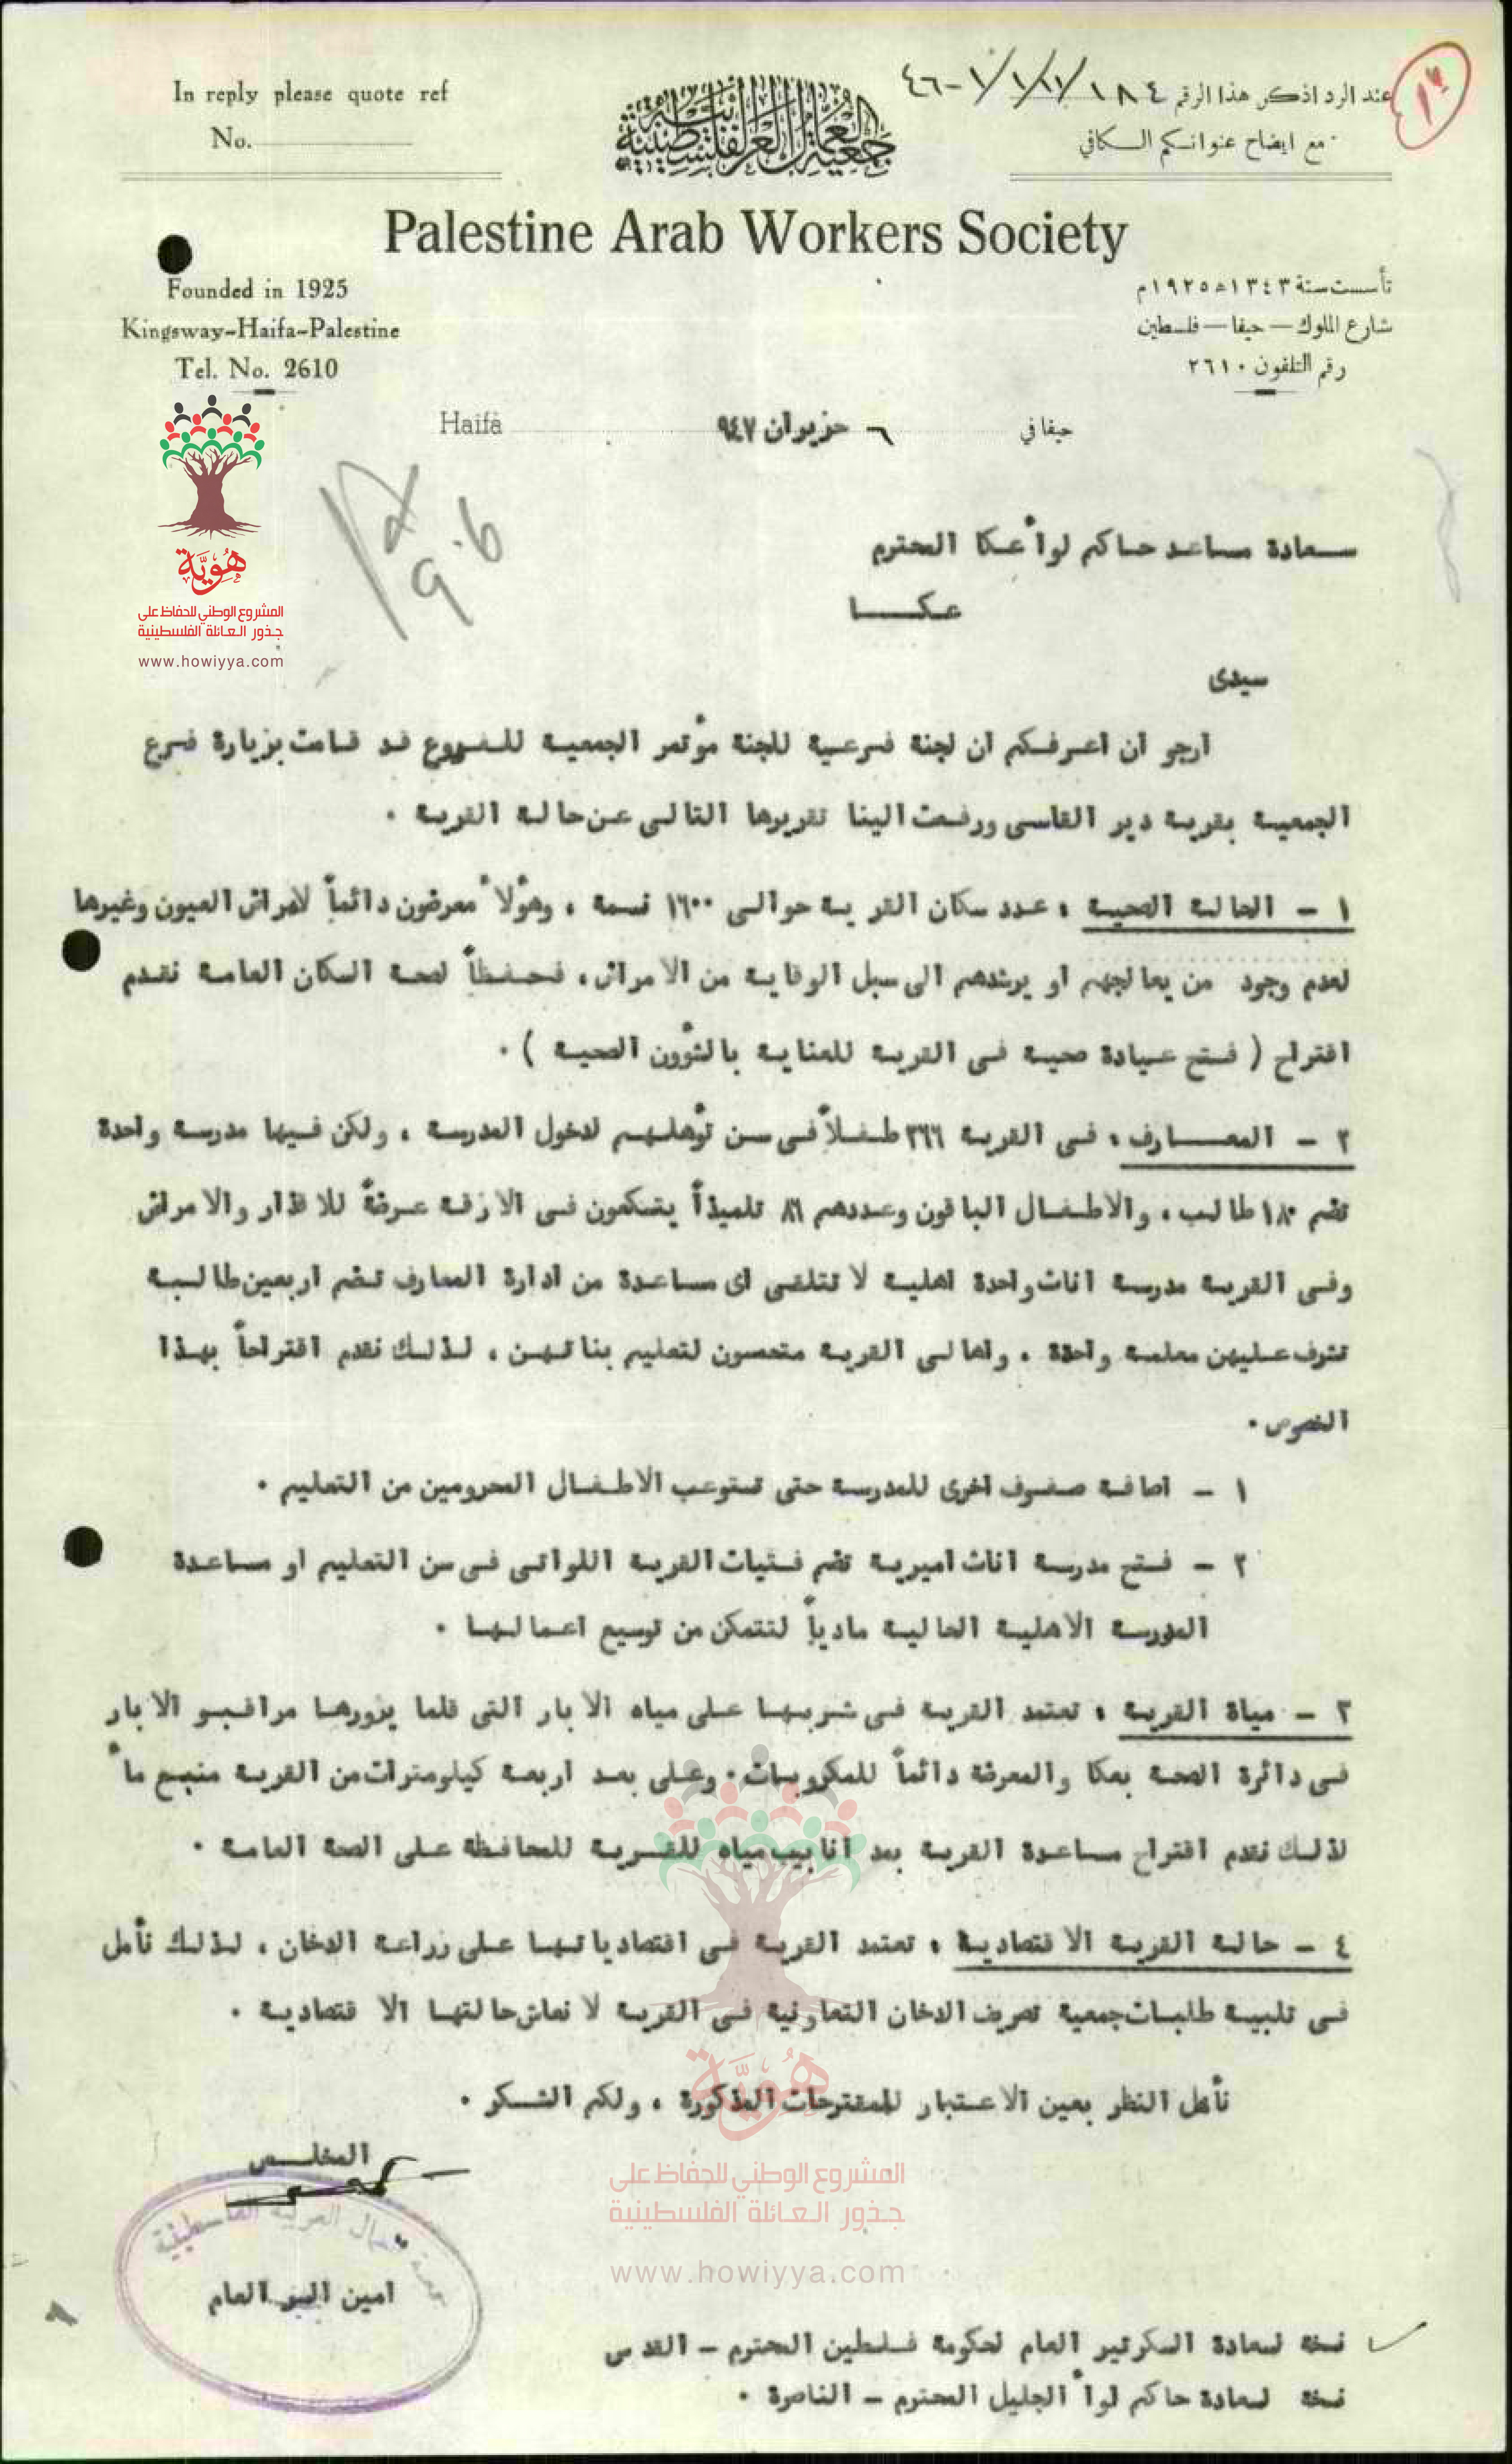 In reply please quote ref
No.
جمعية العمال العربية الفلسطينية
عند الرد اذكر هذا الرقم ١٨٤
مع ايضاح عنوانكم الكافي
Palestine Arab Workers Society
Founded in 1925
Kingsway-Haifa-Palestine
Tel. No. 2610
تأسست سنة ١٣٤٣ھ ١٩٢٥م
شارع الملوك — حيفا — فلسطين
رقم التلفون ٢٦١٠
Haifa
حيفا في ٦ حزيران ٩٤٧
هُويَّة
المشروع الوطني للحفاظ على
جذور العائلة الفلسطينية
www.howiyya.com
9.6
سعادة مساعد حاكم لواء عكا المحترم
عكا
سيدى
ارجو ان اعرفكم ان لجنة فرعية للجنة مؤتمر الجمعية للفروع قد قامت بزيارة فرع
الجمعية بقرية دير القاسى ورفعت الينا تقريرها التالى عن حالة القرية .
١ - الحالة الصحية : عدد سكان القرية حوالى ١٦٠٠ نسمة ، وهؤلاء معرضون دائماً لامراض العيون وغيرها
لعدم وجود من يعالجهم او يرشدهم الى سبل الوقاية من الامراض ، فحفظاً لصحة السكان العامة نقدم
اقتراح ( فتح عيادة صحية فى القرية للعناية بالشؤون الصحية ) .
٢ - المعارف : فى القرية ٢٦٦ طفلاً فى سن تؤهلهم لدخول المدرسة ، ولكن فيها مدرسة واحدة
تضم ١٨٠ طالب ، والاطفال الباقون وعددهم ٨٦ تلميذاً يتسكعون فى الازقة عرضةً للاقذار والامراض
وفى القرية مدرسة اناث واحدة اهلية لا تتلقى اى مساعدة من ادارة المعارف تضم اربعين طالبة
تشرف عليهن معلمة واحدة . واهالى القرية متحمسون لتعليم بناتهن ، لذلك نقدم اقتراحاً بهذا
الخصوص .
١ - اضافة صفوف اخرى للمدرسة حتى تستوعب الاطفال المحرومين من التعليم .
٢ - فتح مدرسة اناث اميرية تضم فتيات القرية اللواتى فى سن التعليم او مساعدة
المدرسة الاهلية الحالية مادياً لتتمكن من توسيع اعمالها .
٣ - مياة القرية : تعتمد القرية فى شربها على مياه الابار التى قلما يزورها مراقبو الابار
فى دائرة الصحة بعكا والمعرضة دائماً للمكروبات . وعلى بعد اربعة كيلومترات من القرية منبع ماء
لذلك نقدم اقتراح مساعدة القرية بمد انابيب مياه للقرية للمحافظة على الصحة العامة .
٤ - حالة القرية الاقتصادية : تعتمد القرية فى اقتصادياتها على زراعة الدخان ، لذلك نأمل
فى تلبية طلبات جمعية تصريف الدخان التعاونية فى القرية لانعاش حالتها الاقتصادية .
نأمل النظر بعين الاعتبار للمقترحات المذكورة ، ولكم الشكر .
المخلص
امين السر العام
هُويَّة
المشروع الوطني للحفاظ على
جذور العائلة الفلسطينية
www.howiyya.com
نسخة لسعادة السكرتير العام لحكومة فلسطين المحترم - القدس
نسخة لسعادة حاكم لواء الجليل المحترم - الناصرة .